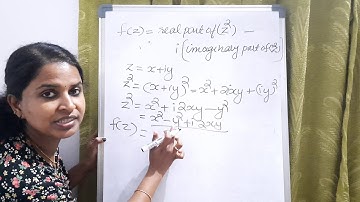 f(z) = real part of (z²) –
i (imaginary part of z²)
z = x+iy
z² = (x+iy)² = x² + 2xy + (iy)²
z² = x² + i2xy – y²
= x² – y² + i2xy
f(z) =